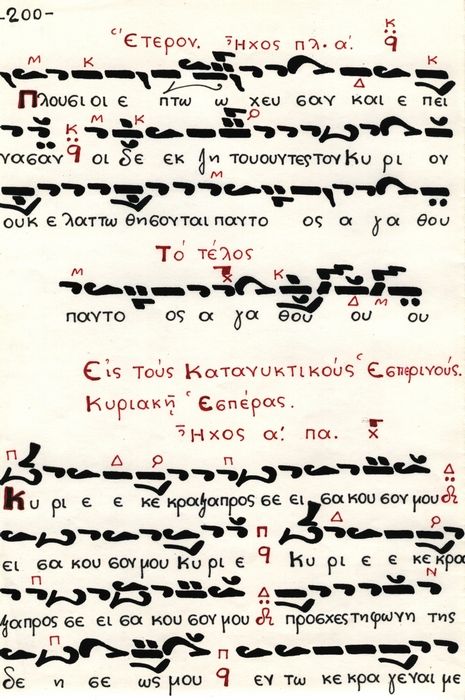 -200-
Ἕτερον. Ἦχος πλ. α΄.
Πλουσι οι ε πτω ω χευ σαν και ε πει
νασαν οι δε εκ ζη τουουντες τον Κυ ρι ον
ουκ ε λαττω θησονται παντο ος α γα θου
Τό τέλος
παντο ος α γα θου ου ου
Εἰς τοὺς Κατανυκτικούς Ἑσπερινούς.
Κυριακῇ Ἑσπέρας.
Ἦχος α΄. πα.
Κυ ρι ε ε κε κραξα προς σε ει σα κου σον μου
ει σα κου σον μου Κυ ρι ε Κυ ρι ε ε κε κρα
ξα προς σε ει σα κου σον μου προσχες τη φωνη της
δε η σε ως μου εν τω κε κρα γεναι με